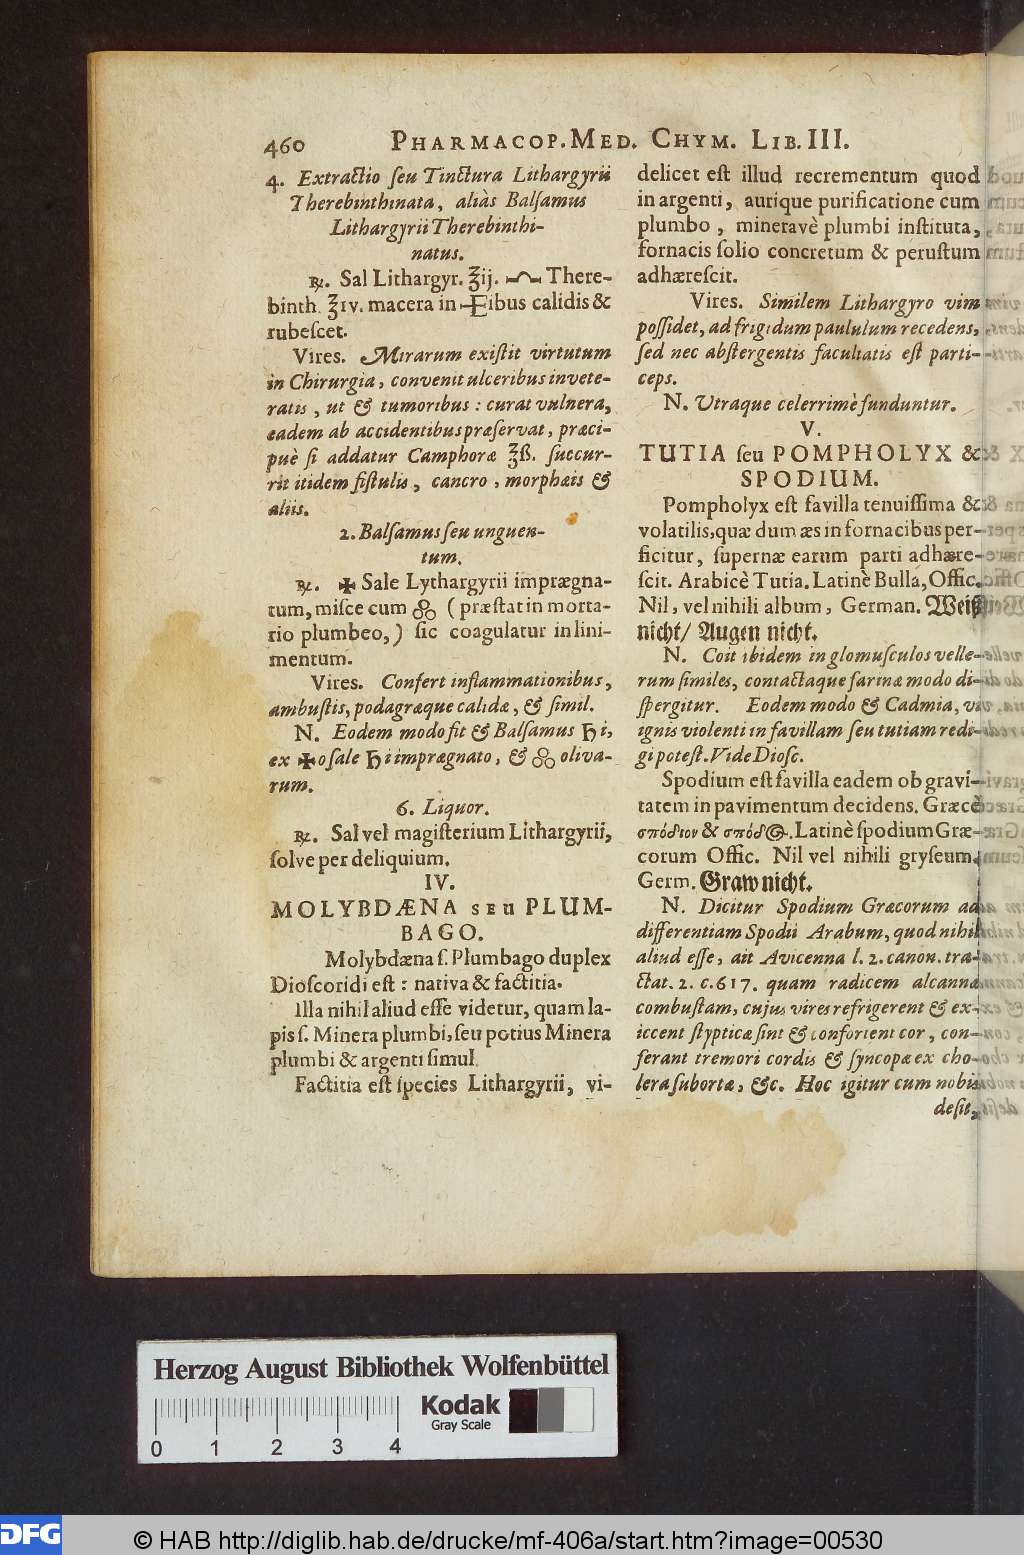 460 PHARMACOP. MED. CHYM. LIB. III.
4. Extractio ſeu Tinctura Lithargyrii
Therebinthinata, aliàs Balſamus
Lithargyrii Therebinthi-
natus.
℞. Sal Lithargyr. ℥ij. There-
binth. ℥ıv. macera in ibus calidis &
rubeſcet.
Vires. Mirarum exiſtit virtutum
in Chirurgia, convenit ulceribus invete-
ratis, ut & tumoribus: curat vulnera,
eadem ab accidentibus præſervat, præci-
puè ſi addatur Camphoræ ℥ß. ſuccur-
rit itidem fiſtulis, cancro, morphæis &
aliis.
2. Balſamus ſeu unguen-
tum.
℞. ✠ Sale Lythargyrii imprægna-
tum, miſce cum (præſtat in morta-
rio plumbeo,) ſic coagulatur in lini-
mentum.
Vires. Confert inflammationibus,
ambuſtis, podagræque calidæ, & ſimil.
N. Eodem modo fit & Balſamus ♄i,
ex ✠o ſale ♄i imprægnato, & oliva-
rum.
6. Liquor.
℞. Sal vel magiſterium Lithargyrii,
ſolve per deliquium.
IV.
MOLYBDÆNA SEU PLUM-
BAGO.
Molybdæna ſ. Plumbago duplex
Dioſcoridi eſt: nativa & factitia.
Illa nihil aliud eſſe videtur, quam la-
pis ſ. Minera plumbi, ſeu potius Minera
plumbi & argenti ſimul.
Factitia eſt ſpecies Lithargyrii, vi-
delicet eſt illud recrementum quod
in argenti, aurique purificatione cum
plumbo, mineravè plumbi inſtituta,
fornacis ſolio concretum & peruſtum
adhæreſcit.
Vires. Similem Lithargyro vim
poſſidet, ad frigidum paululum recedens,
ſed nec abſtergentis facultatis eſt parti-
ceps.
N. Utraque celerrimè funduntur.
V.
TUTIA ſeu POMPHOLYX &
SPODIUM.
Pompholyx eſt favilla tenuiſſima &
volatilis, quæ dum æs in fornacibus per-
ficitur, ſupernæ earum parti adhære-
ſcit. Arabicè Tutia. Latinè Bulla, Offic.
Nil, vel nihili album, German. Weiß
nicht/ Augen nicht.
N. Coit ibidem in glomuſculos velle-
rum ſimiles, contactaque farinæ modo di-
ſpergitur. Eodem modo & Cadmia, vi
ignis violenti in favillam ſeu tutiam redi-
gi poteſt. Vide Dioſc.
Spodium eſt favilla eadem ob gravi-
tatem in pavimentum decidens. Græcè
σπόδιον & σπόδος. Latinè ſpodium Græ-
corum Offic. Nil vel nihili gryſeum.
Germ. Graw nicht.
N. Dicitur Spodium Græcorum ad
differentiam Spodii Arabum, quod nihil
aliud eſſe, ait Avicenna l. 2. canon. tra-
ctat. 2. c. 617. quam radicem alcannæ
combuſtam, cujus vires refrigerent & ex-
iccent ſtypticæ ſint & confortent cor, con-
ferant tremori cordis & ſyncopæ ex cho-
lera ſubortæ, &c. Hoc igitur cum nobis
deſit,
Herzog August Bibliothek Wolfenbüttel
Kodak
Gray Scale
0 1 2 3 4
DFG
© HAB http://diglib.hab.de/drucke/mf-406a/start.htm?image=00530